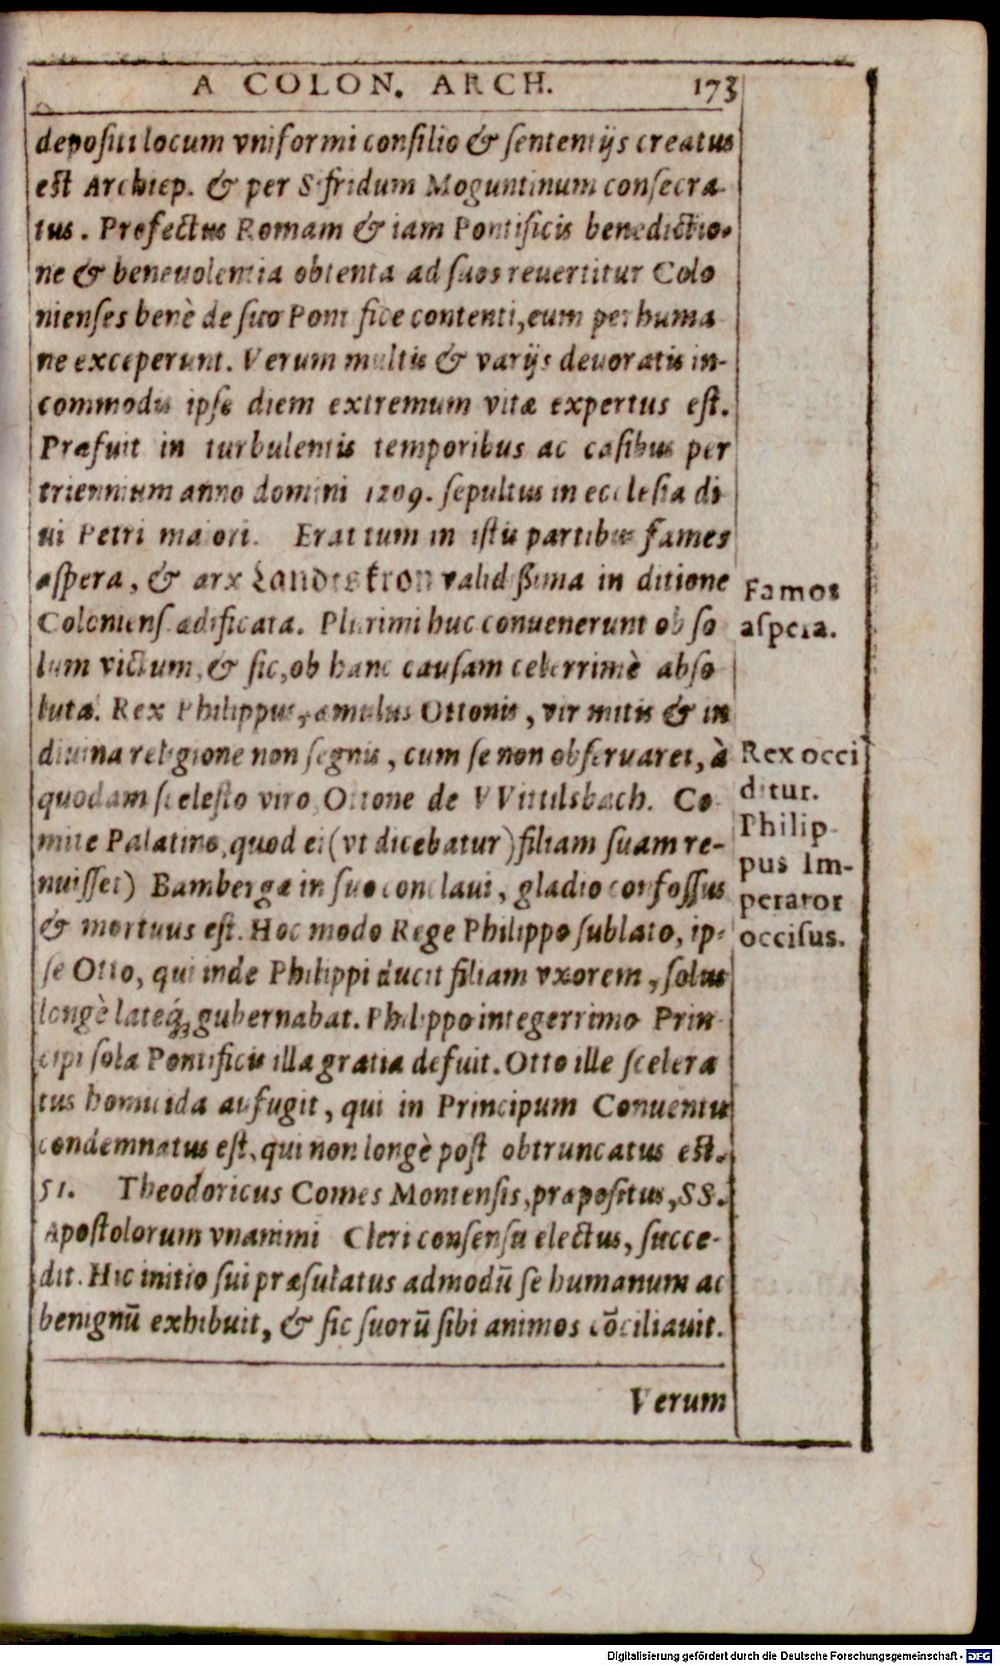 A COLON. ARCH. 173
depositi locum vniformi consilio & sententijs creatus
est Archiep. & per Sifridum Moguntinum consecra-
tus. Profectus Romam & iam Pontificis benedictio-
ne & beneuolentia obtenta ad suos reuertitur Colo
nienses benè de suo Pontifice contenti, eum perhuma
ne exceperunt. Verum multis & varijs deuoratis in-
commodis ipse diem extremum vitæ expertus est.
Præfuit in turbulentis temporibus ac casibus per
triennium anno domini 1209. sepultus in ecclesia di
ui Petri maiori. Erat tum in istis partibus fames
aspera, & arx Landeskron validissima in ditione
Coloniensi ædificata. Plurimi huc conuenerunt ob so
lum victum, & sic, ob hanc causam celerrimè abso
luta. Rex Philippus, æmulus Ottonis, vir mitis & in
diuina religione non segnis, cum se non obseruaret, à
quodam scelesto viro Ottone de VVittilsbach. Co-
mite Palatino, quod ei (vt dicebatur) filiam suam re-
nuisset) Bambergæ in suo conclaui, gladio confossus
& mortuus est. Hoc modo Rege Philippo sublato, ip-
se Otto, qui inde Philippi ducit filiam vxorem, solus
longè lateq́ꝫ gubernabat. Philippo integerrimo Prin-
cipi sola Pontificis illa gratia defuit. Otto ille scelera
tus homicida aufugit, qui in Principum Conuentu
condemnatus est, qui non longè post obtruncatus est.
51. Theodoricus Comes Montensis, præpositus, SS.
Apostolorum vnanimi Cleri consensu electus, succe-
dit. Hic initio sui præsulatus admodū se humanum ac
benignū exhibuit, & sic suorū sibi animos cōciliauit.
Verum
Fames
aspera.
Rex occi
ditur.
Philip-
pus Im-
perator
occisus.
Digitalisierung gefördert durch die Deutsche Forschungsgemeinschaft - DFG